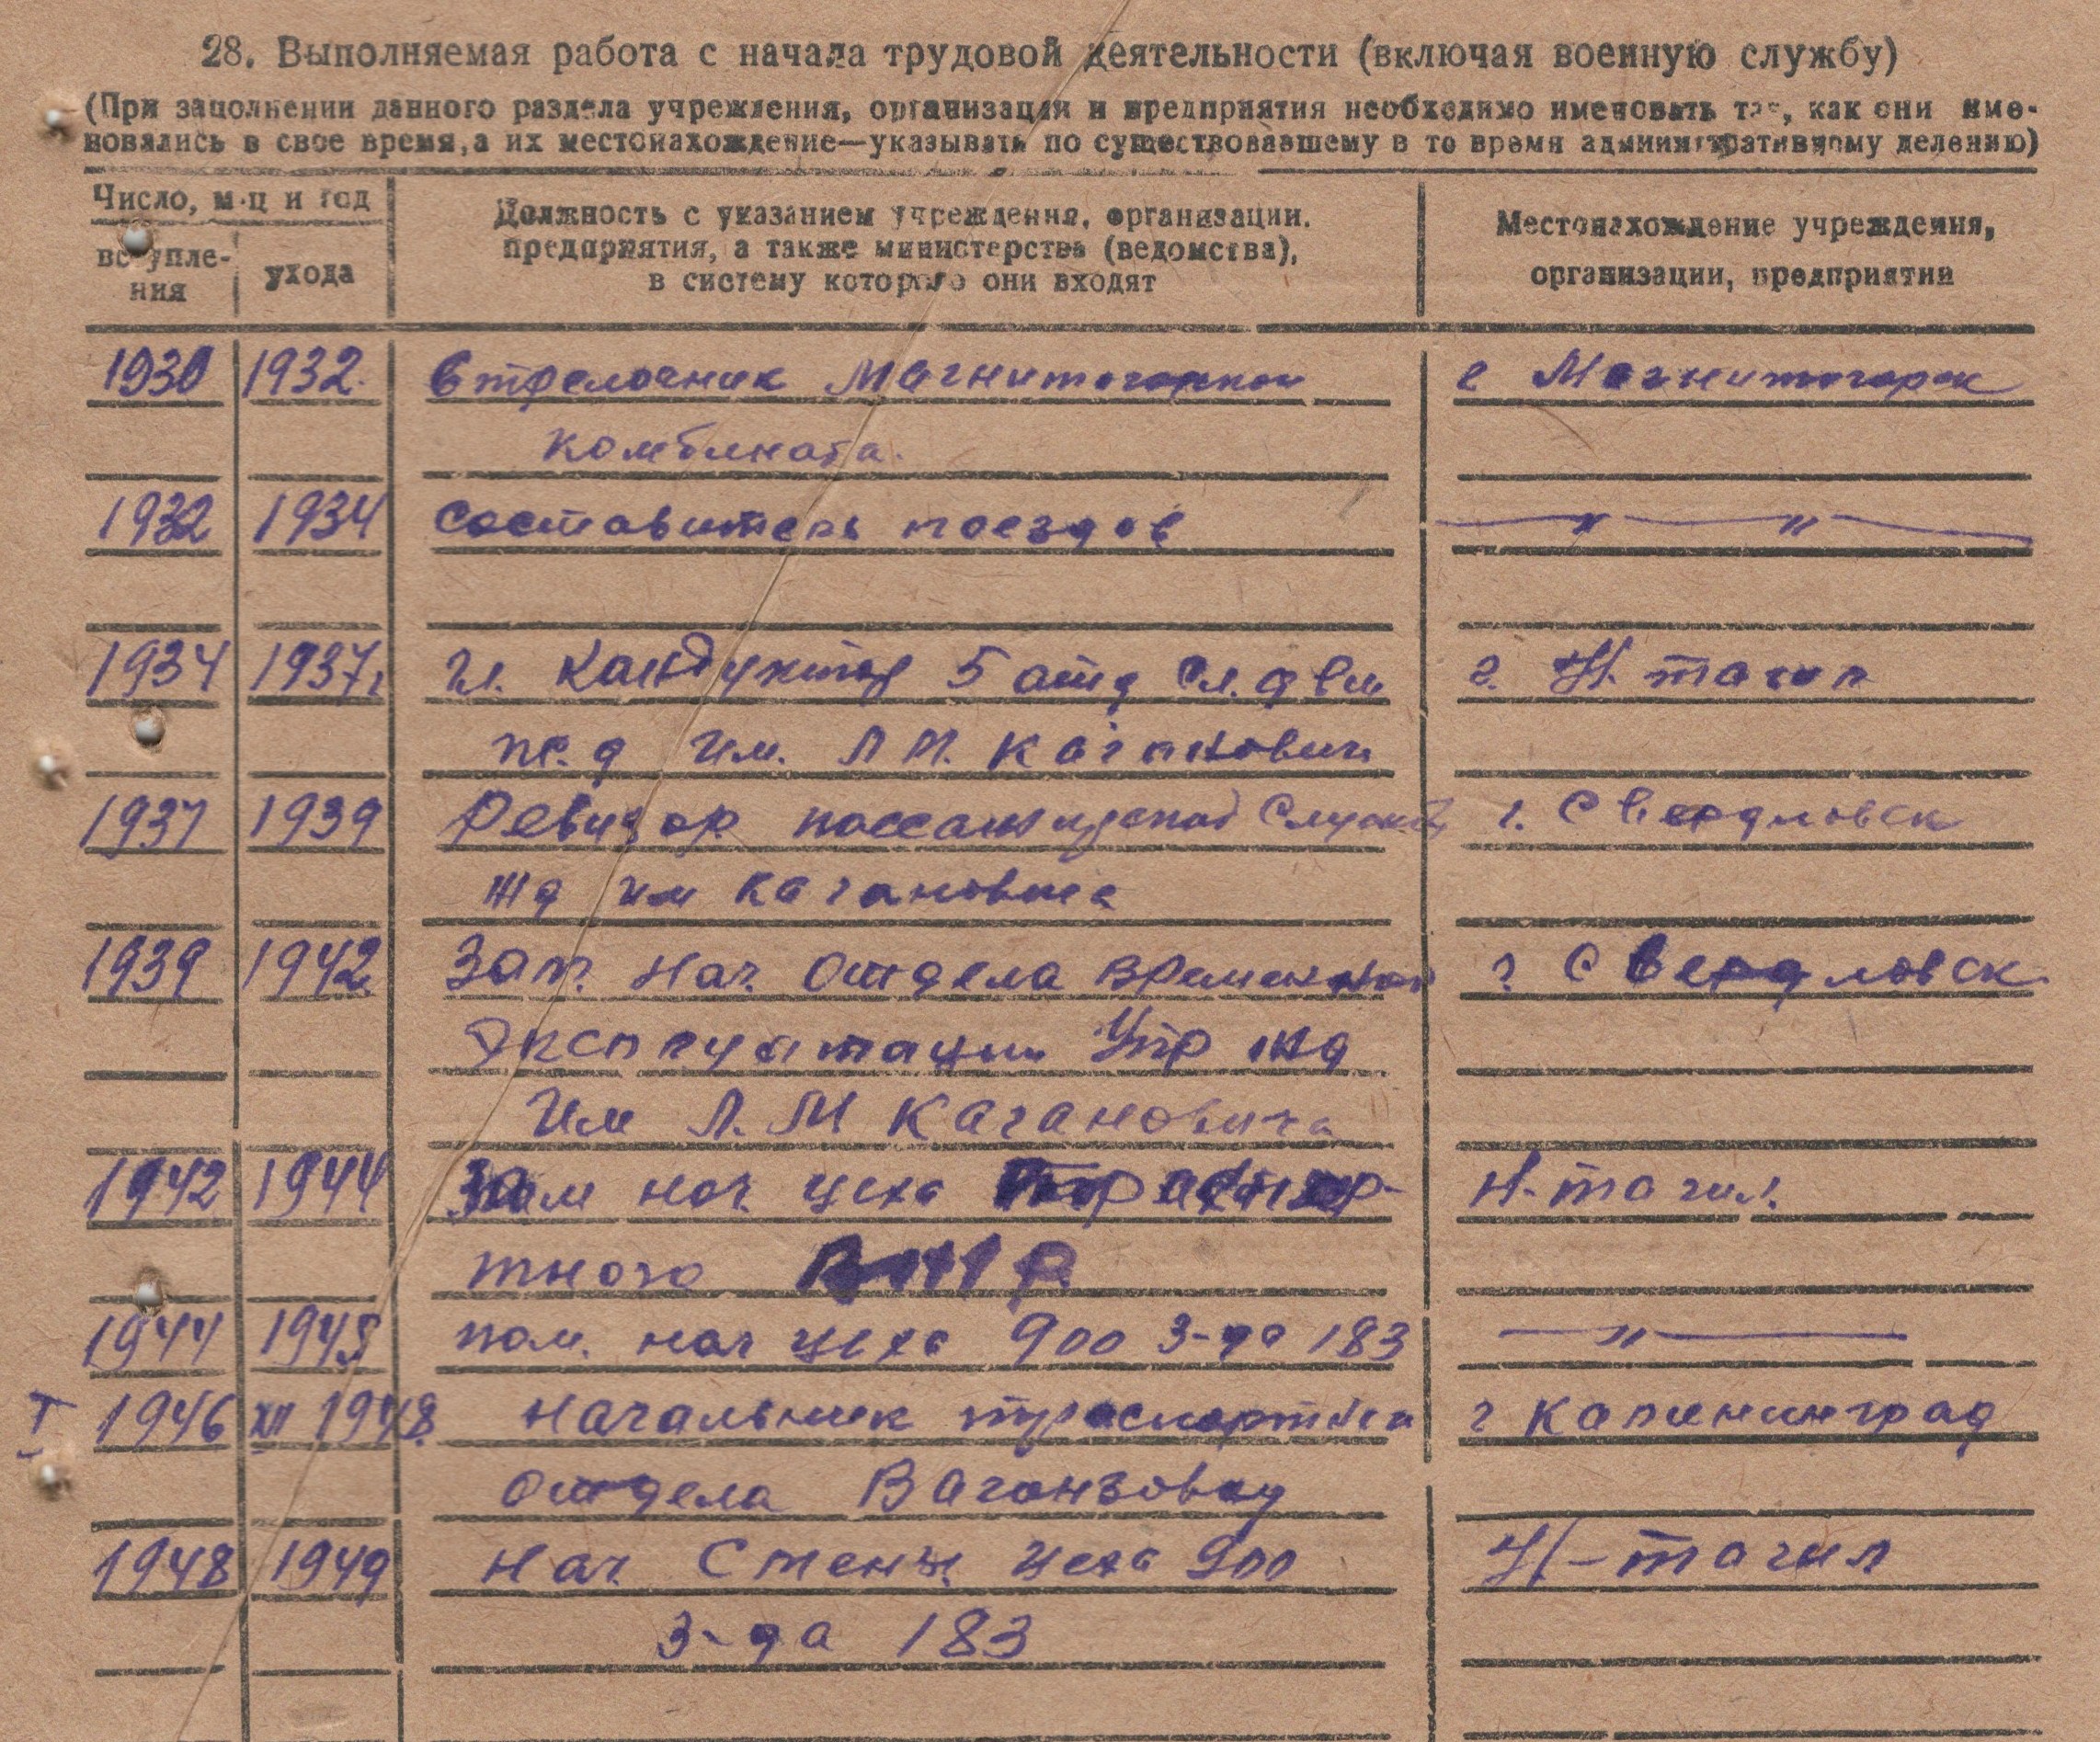 28. Выполняемая работа с начала трудовой деятельности (включая военную службу)
(При заполнении данного раздела учреждения, организации и предприятия необходимо именовать так, как они име-
новались в свое время, а их местонахождение—указывать по существовавшему в то время административному делению)
Число, м-ц и год
вступле-
ния
ухода
Должность с указанием учреждения, организации,
предприятия, а также министерства (ведомства),
в систему которого они входят
Местонахождение учреждения,
организации, предприятия
1930 1932. Стрелочник Магнитогорского г Магнитогорск
комбината.
1932 1934 Составитель поездов —〃—〃—
1934 1937г Гл. Кандуктор 5 отд Сл. дви г. Н. тагил
ж. д им. Л М. Кагановича
1937 1939 Ревизор пассажирской Службы г. Свердловск
жд им Кагановича
1939 1942 Зам. нач. отдела временной г Свердловск
Эксплуатации Упр жд
Им Л. М Кагановича
1942 1944 Зам нач. цеха Н-тагил.
тного
1944 1945 пом. нач цеха 900 3-да 183 —〃—
I 1946 XII 1948 Начальник траспортного г Калининград
отдела Вагонзавод
1948 1949 Нач. Станц. цеха 900 Н-тагил
3-да 183